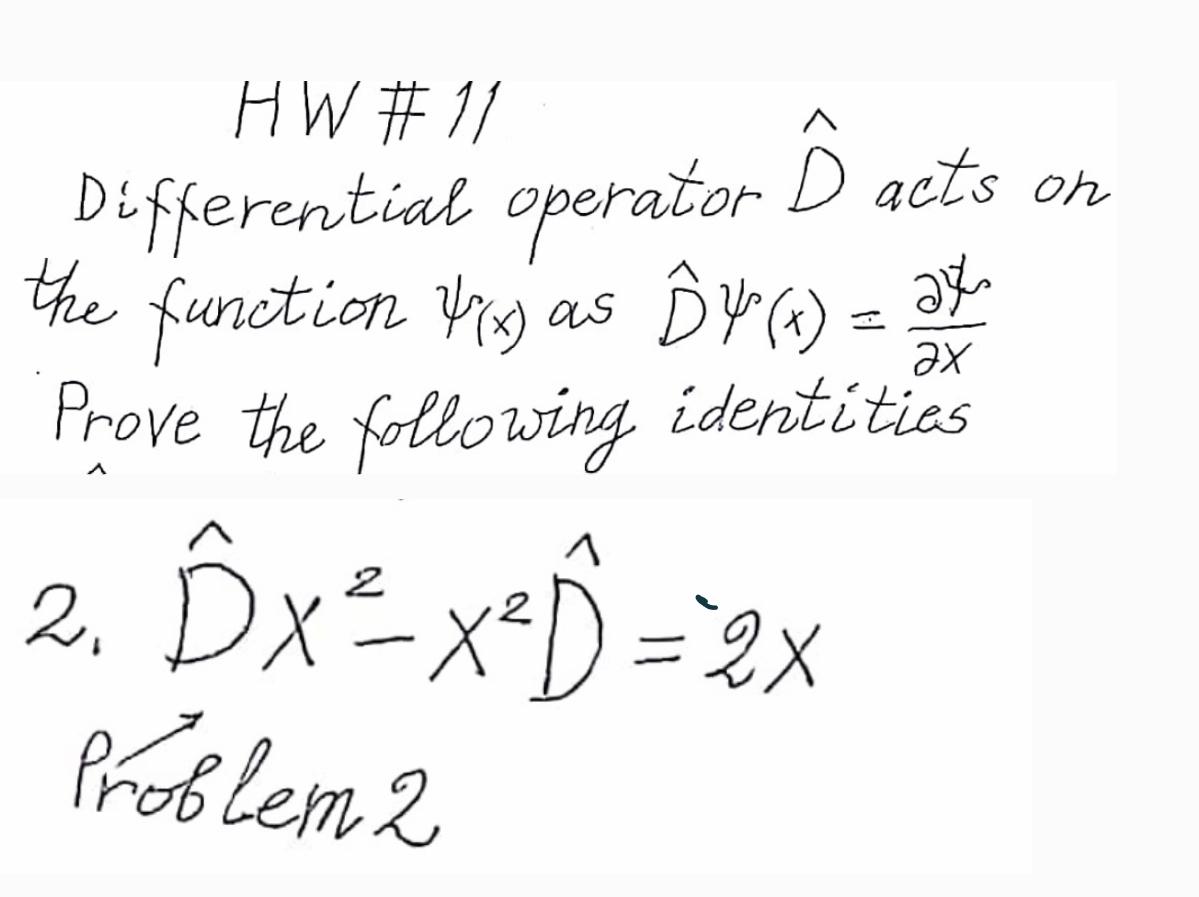 HW # 11
Differential operator D̂ acts on
the function ψ(x) as D̂ψ(x) = ∂ψ/∂x
Prove the following identities
2. D̂x² - x²D̂ = 2x
Problem 2